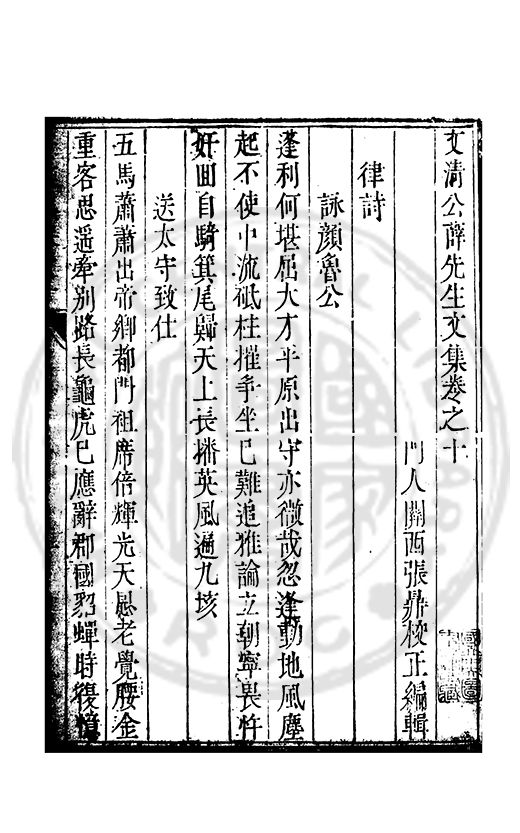 文清公薛先生文集卷之十
門人關西張鼎校正編輯
律詩
詠顏魯公
蓬利何堪屈大才平原出守亦微哉忽逢動地風塵
起不使中流砥柱摧爭坐已難追雅論立朝寧畏忤
奸囬自騎箕尾歸天上長播英風遍九垓
送太守致仕
五馬蕭蕭出帝鄉都門祖席倍輝光天慰老覺腰金
重客思遥牽别路長龜虎已應辭郡國貂蟬時復憶